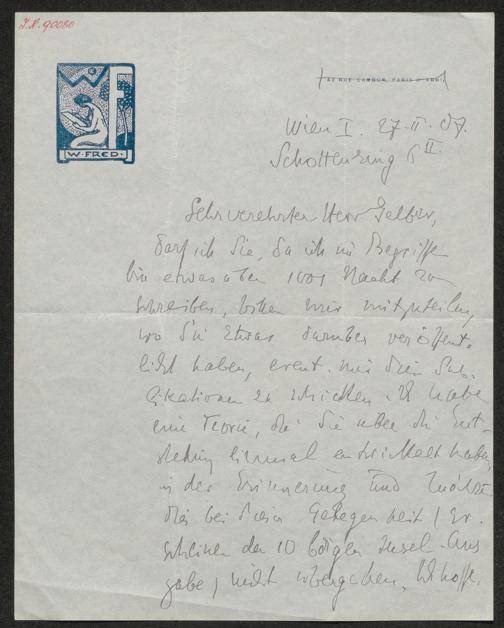 I.N. 90080
W·FRED·
Wien I. 27·II·07.
Schottenring 6 II
Sehr verehrter Herr Gelber,
darf ich Sie, da ich im Begriffe
bin etwas über 1001 Nacht zu
schreiben, bitten mir mitzuteilen,
wo Sie Etwas darüber veröffent-
licht haben, event. mir die Pub-
likationen zu schicken. Ich habe
eine Teorie, die Sie über die Ent-
stehung einmal entwickelt haben
in der Erinnerung und möchte
das bei dieser Gelegenheit (Er-
scheinen der 10 bdgen Insel-Aus
gabe) nicht übergehen. Ich hoffe,